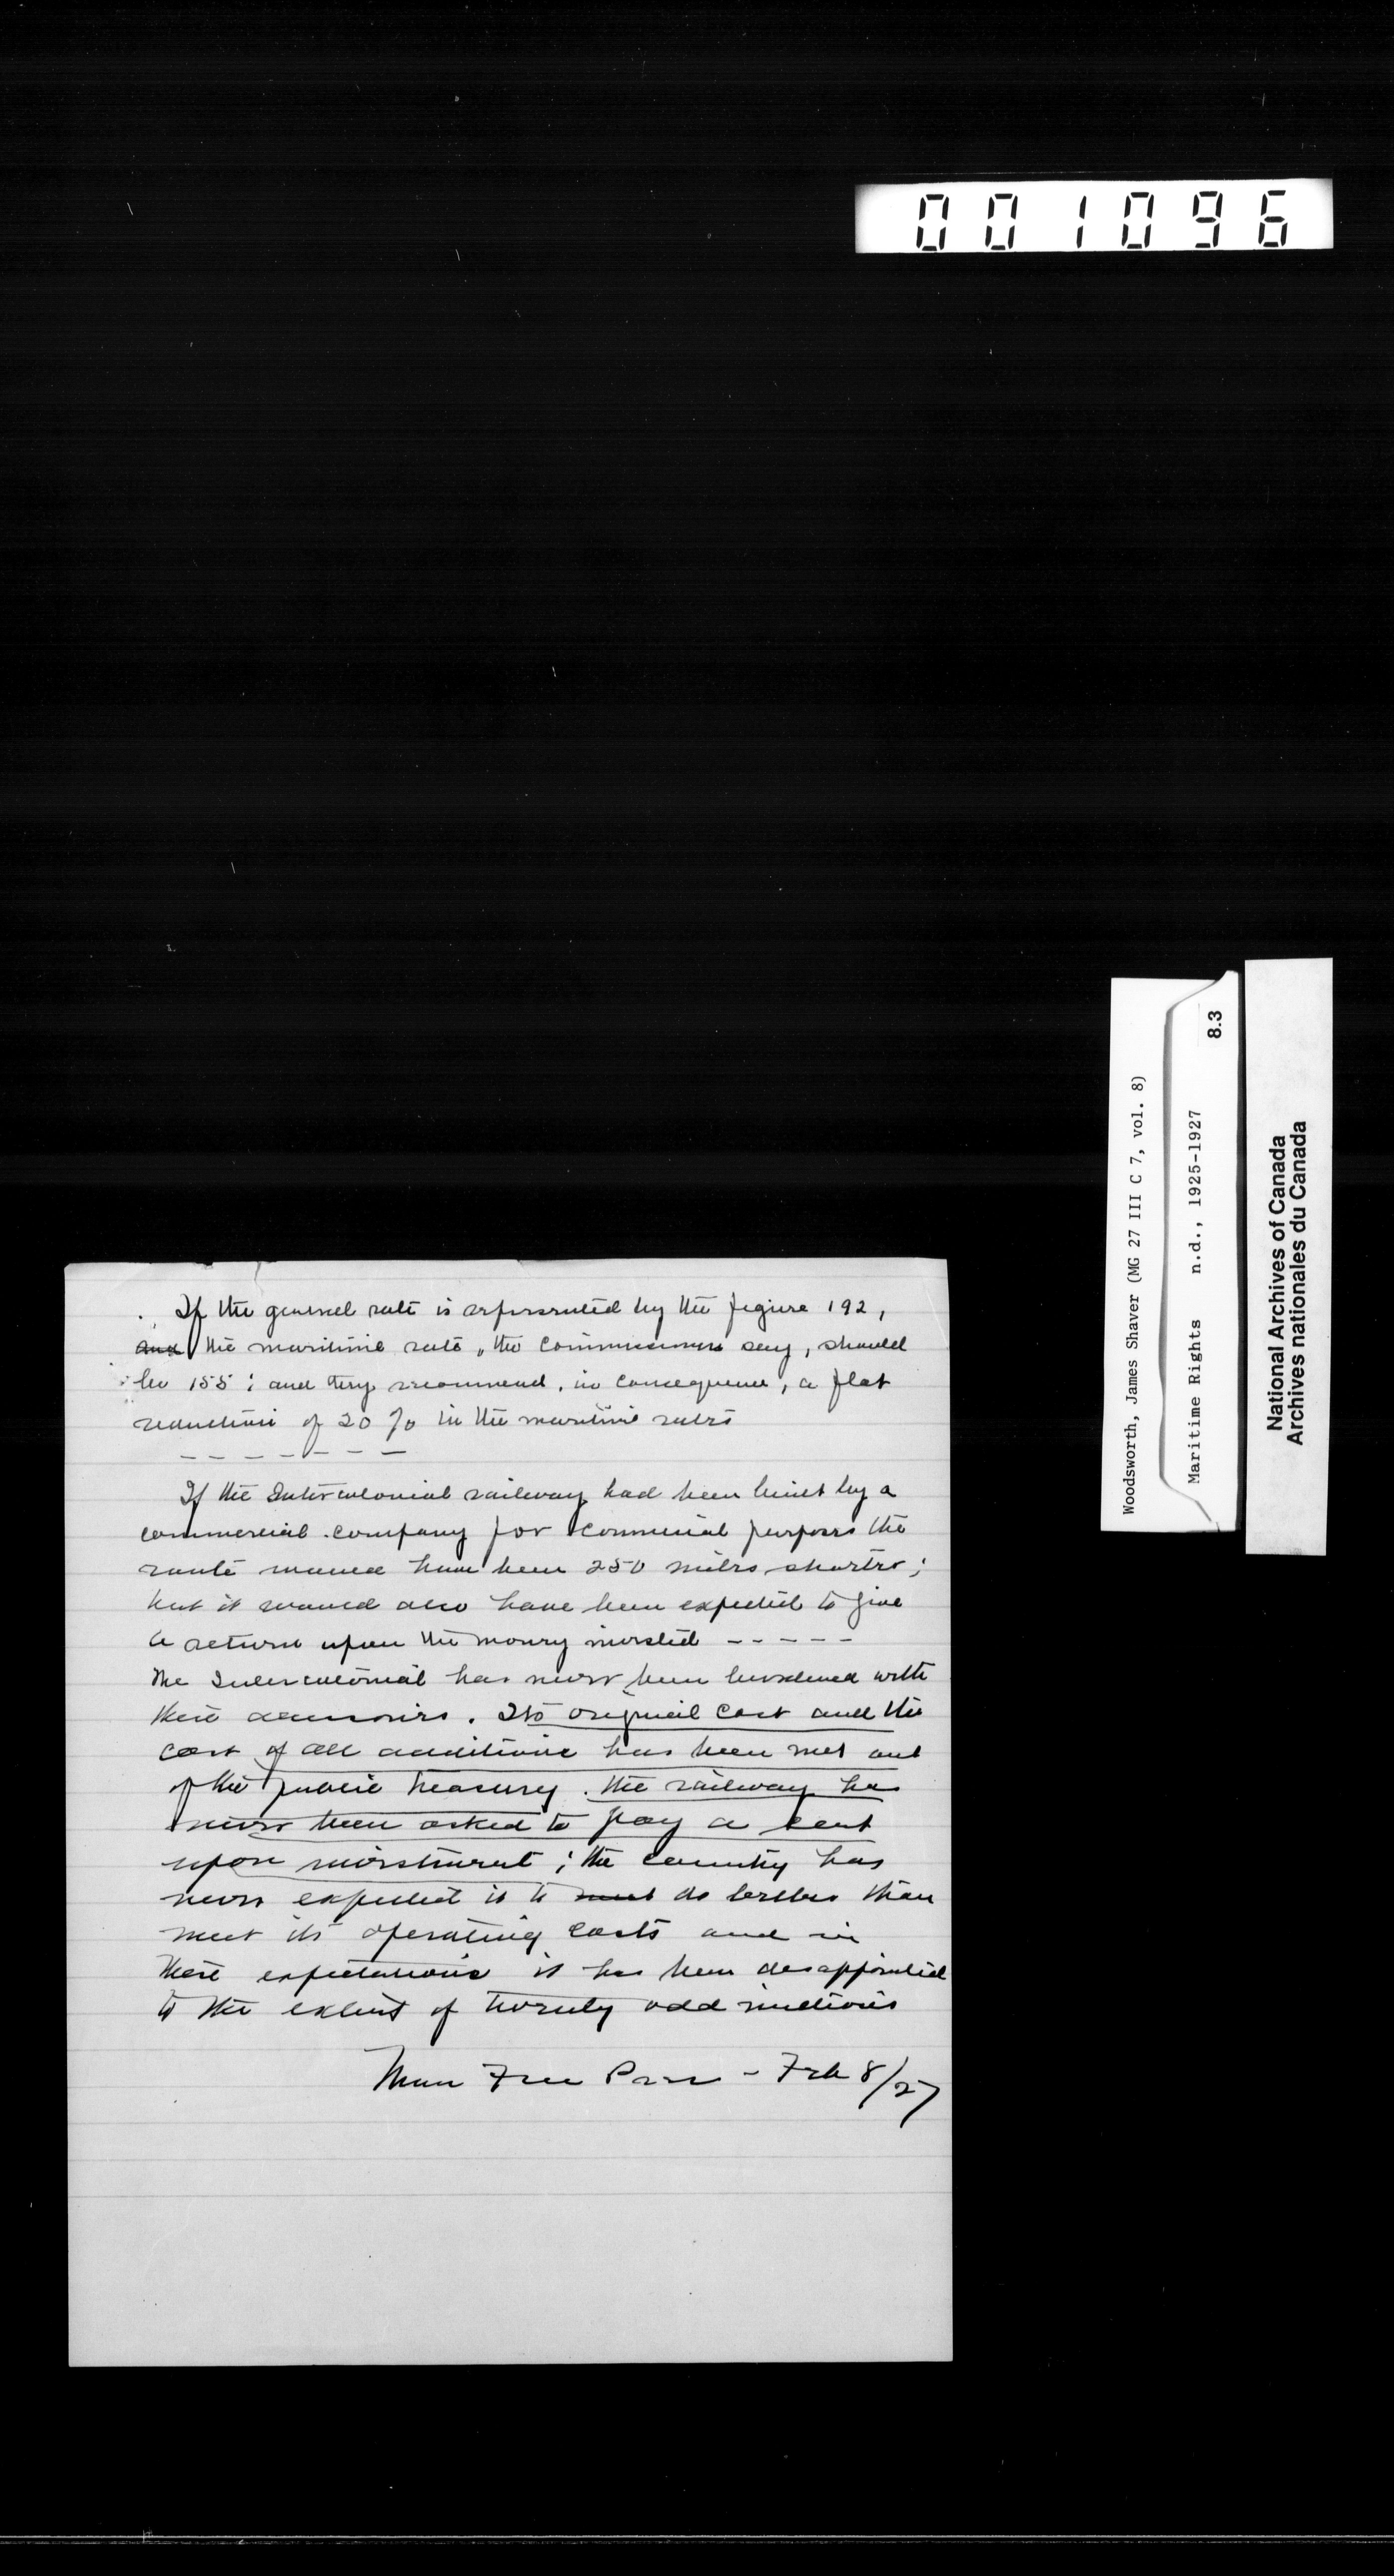 001096
If the general rate is represented by the figure 192,
and the maritime rate, the commissioners say, should
be 155; and they recommend, in consequence, a flat
reduction of 20 % in the maritime rates
- - - - - - - -
If the Intercolonial railway had been built by a
commercial company for commercial purposes the
route would have been 250 miles shorter;
but it would also have been expected to give
a return upon the money invested - - - - -
The Intercolonial has never been burdened with
these . Its original cost and the
cost of all additions has been met out
of the public treasury. The railway has
never been asked to pay a cent
upon investment; the country has
never expected it to meet do better than
meet its operating costs and in
these expectations it has been disappointed
to the extent of twenty odd millions
Man Free Press - Feb 8/27
Woodsworth, James Shaver (MG 27 III C 7, vol. 8)
Maritime Rights n.d., 1925-1927 8.3
National Archives of Canada
Archives nationales du Canada